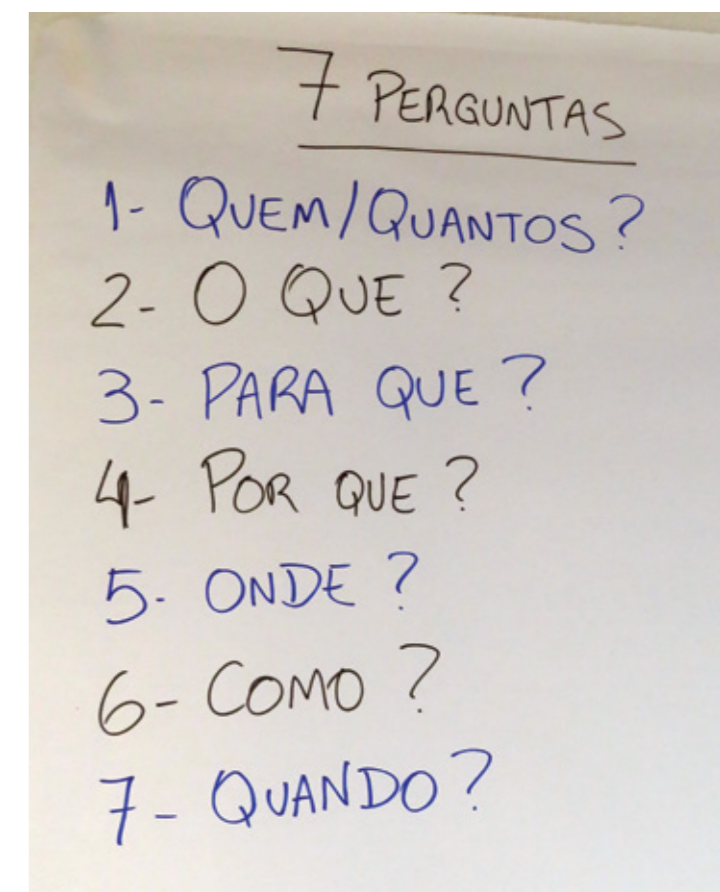 7 PERGUNTAS
1- QUEM/QUANTOS?
2- O QUE?
3- PARA QUE?
4- POR QUE?
5- ONDE?
6- COMO?
7- QUANDO?